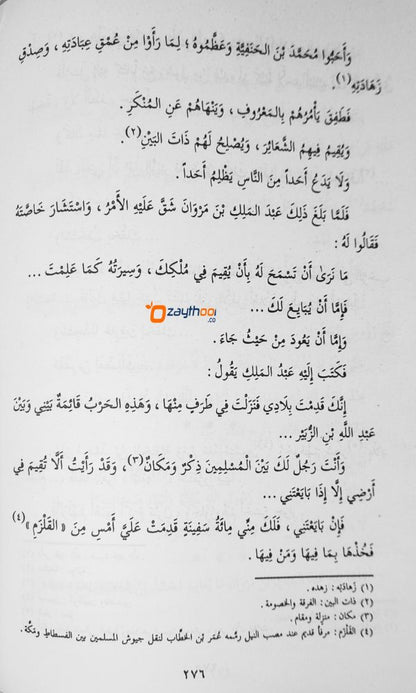 وَأَحَبُّوا مُحَمَّدَ بْنَ الْحَنَفِيَّةِ وَعَظَّمُوهُ ؛ لِمَا رَأَوْا مِنْ عُمْقِ عِبَادَتِهِ ، وَصِدْقِ
زَهَادَتِهِ (١).
فَطَفِقَ يَأْمُرُهُمْ بِالمَعْرُوفِ ، وَيَنْهَاهُمْ عَنِ المُنْكَرِ .
وَيُقِيمُ فِيهِمُ الشَّعَائِرَ ، وَيُصْلِحُ لَهُمْ ذَاتَ البَيْنِ (٢).
وَلَا يَدَعُ أَحَداً مِنَ النَّاسِ يَظْلِمُ أَحَداً .
فَلَمَّا بَلَغَ ذَلِكَ عَبْدَ المَلِكِ بْنَ مَرْوَانَ شَقَّ عَلَيْهِ الأَمْرُ ، وَاسْتَشَارَ خَاصَّتَهُ
فَقَالُوا لَهُ :
مَا نَرَىٰ أَنْ تَسْمَحَ لَهُ بِأَنْ يُقِيمَ فِي مُلْكِكَ ، وَسِيرَتُهُ كَمَا عَلِمْتَ ...
فَإِمَّا أَنْ يُبَايِعَ لَكَ ...
zaythoon.co
وَإِمَّا أَنْ يَعُودَ مِنْ حَيْثُ جَاءَ .
فَكَتَبَ إِلَيْهِ عَبْدُ المَلِكِ يَقُولُ :
إِنَّكَ قَدِمْتَ بِلَادِي فَنَزَلْتَ فِي طَرَفٍ مِنْهَا ، وَهَذِهِ الحَرْبُ قَائِمَةٌ بَيْنِي وَبَيْنَ
عَبْدِ اللَّهِ بْنِ الزُّبَيْرِ ...
وَأَنْتَ رَجُلٌ لَكَ بَيْنَ المُسْلِمِينَ ذِكْرٌ وَمَكَانٌ (٣)، وَقَدْ رَأَيْتُ أَلَّا تُقِيمَ فِي
أَرْضِي إِلَّا إِذَا بَايَعْتَنِي ...
فَإِنْ بَايَعْتَنِي ، فَلَكَ مِنِّي مِائَةُ سَفِينَةٍ قَدِمَتْ عَلَيَّ أَمْسِ مِنَ « القَلْزَمِ » (٤)
فَخُذْهَا بِمَا فِيهَا وَمَنْ فِيهَا .
(١) زَهَادَتِهِ : زهده .
(٢) ذات البين : الفرقة والخصومة .
(٣) مكان : منزلة ومقام .
(٤) القلزم : مرفأ قديم عند مصب النيل رمَّمه عُمَر بْن الخطَّاب لنقل جيوش المسلمين بين الفسطاط ومكّة .
٢٧٦